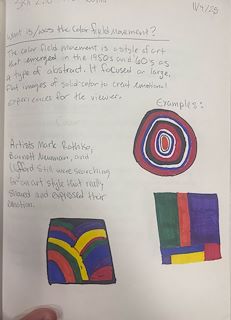 11/4/25
What is/was the Color Field Movement?
The color field movement is a style of art
that emerged in the 1950's and 60's as
a type of abstract. It focused on large,
flat images of solid color to creat emotional
experiences for the viewer.
Examples:
Artists Mark Rothko,
Barnett Newman, and
Clifford Still were searching
for an art style that really
shared and expressed their
emotion.